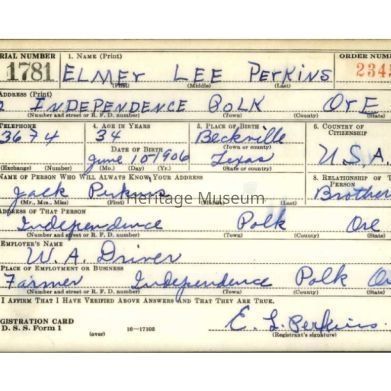 ERIAL NUMBER 1. NAME (Print) ORDER NUM
1781 ELMEY LEE PERKINS 234
(First) (Middle) (Last)
ADDRESS (Print)
INDEPENDENCE POLK OrE
(Number and street or R. F. D. number) (Town) (County) (State)
TELEPHONE 4. AGE IN YEARS 5. PLACE OF BIRTH 6. COUNTRY OF CITIZENSHIP
3674 34 Beckville U.S.A
DATE OF BIRTH (Town or county)
June 10 1906 Texas
(Exchange) (Number) (Mo.) (Day) (Yr.) (State or country)
NAME OF PERSON WHO WILL ALWAYS KNOW YOUR ADDRESS 8. RELATIONSHIP OF THA PERSON
Jack Perkins Brother
(Mr., Mrs., Miss) (First) (Middle) (Last)
Heritage Museum
ADDRESS OF THAT PERSON
Independence Polk Ore
(Number and street or R. F. D. number) (Town) (County) (State)
EMPLOYER'S NAME
W. A. Driver
PLACE OF EMPLOYMENT OR BUSINESS
Farmer Independence Polk Or
(Number and street or R. F. D. number) (Town) (County) (State)
I AFFIRM THAT I HAVE VERIFIED ABOVE ANSWERS AND THAT THEY ARE TRUE.
REGISTRATION CARD
D. S. S. Form 1 (over) 16-17105 E. L. Perkins
(Registrant's signature)